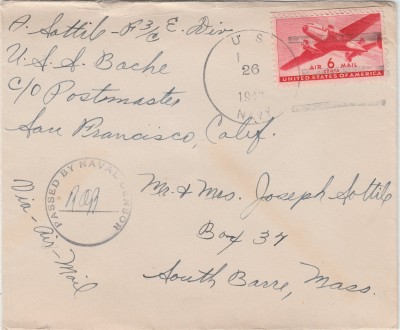 A. Sottile - F 3/c E. Div.
U.S.S. Bache
C/O Postmaster
San Francisco, Calif.
U.S.
26
NAVY
AIR 6¢ MAIL
UNITED STATES OF AMERICA
PASSED BY NAVAL CENSOR
Via-Air-Mail
Mr. & Mrs. Joseph Sottile
Box 37
South Barre, Mass.